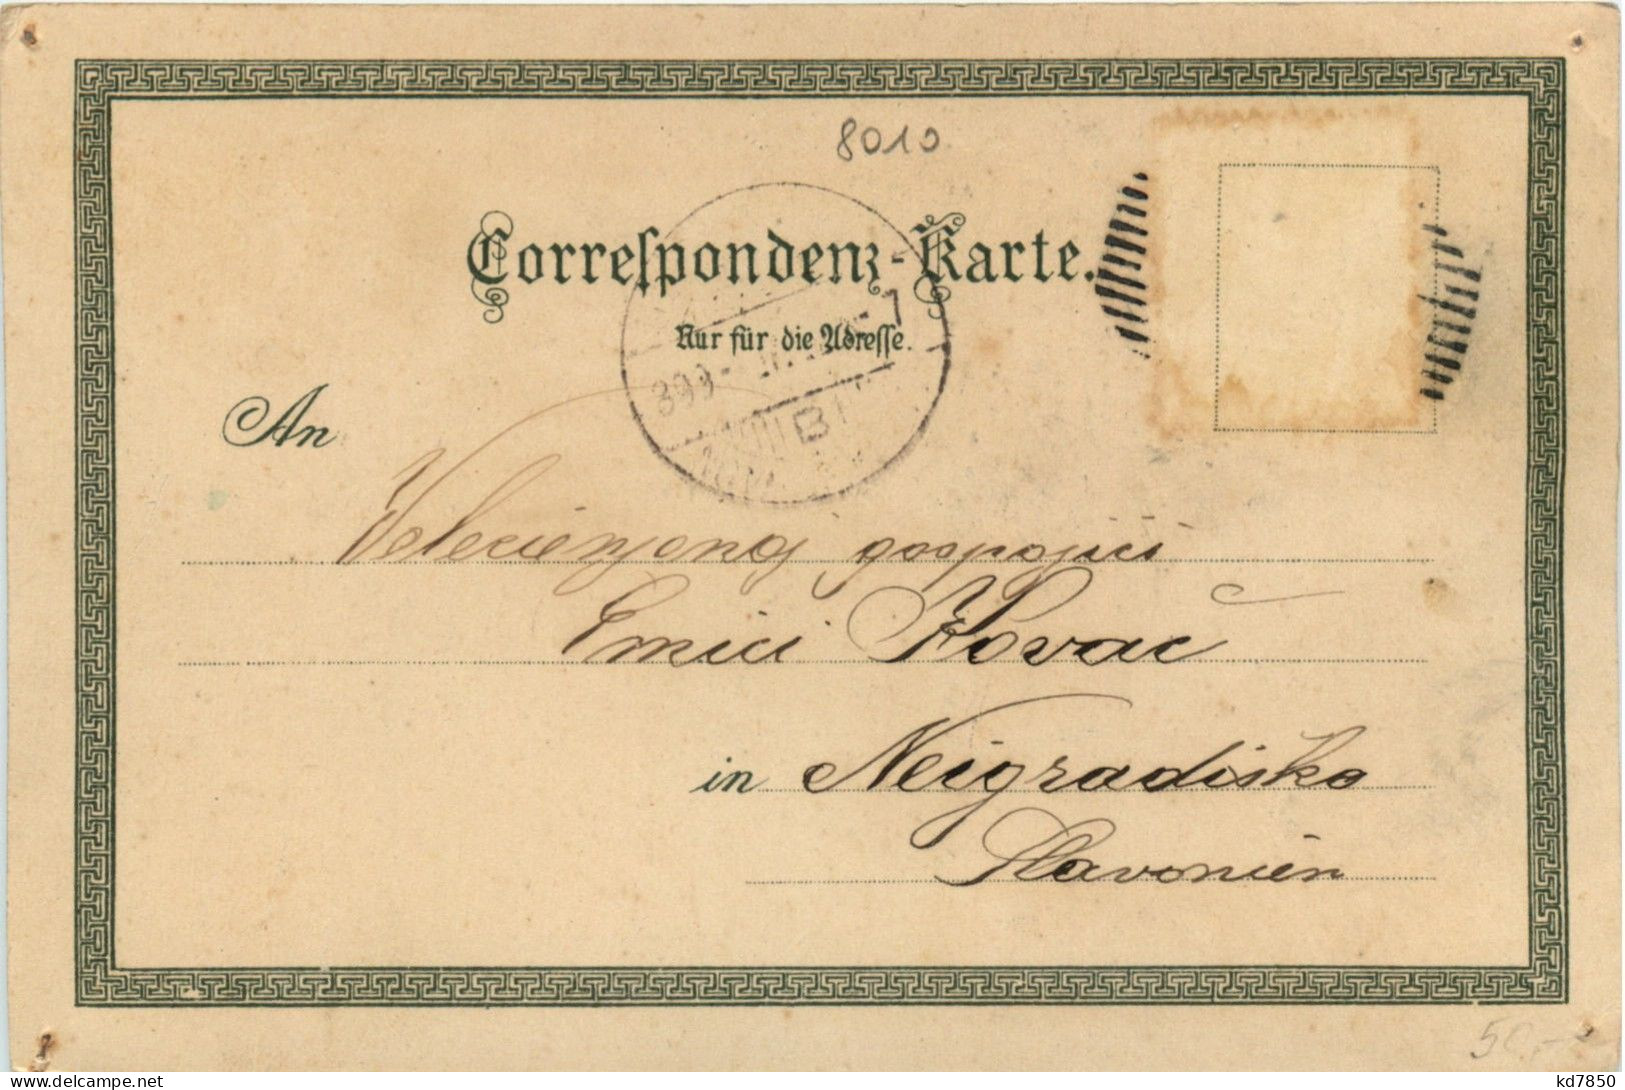 8010
Correspondenz-Karte.
Nur für die Adresse.
An
Velecienjenoj gospojici
Emici Kovač
in Neigradiska
Slavonien
50,-
delcampe.net
kd7850